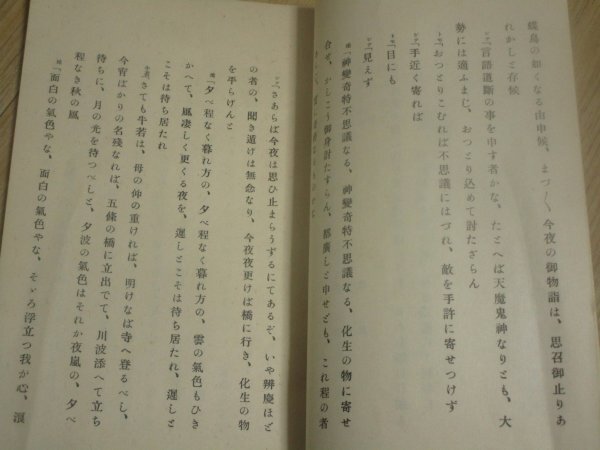 蝶鳥の如くなる由申候、まづ〳〵今夜の御物詣は、思召御止りあ
れかしと存候
シテ「言語道斷の事を申す者かな、たとへば天魔鬼神なりとも、大
勢には適ふまじ、おつとり込めて討たざらん
トモ「おつとりこむれば不思議にはづれ、敵を手許に寄せつけず
シテ「手近く寄れば
トモ「目にも
シテ「見えず
地「神變奇特不思議なる、神變奇特不思議なる、化生の物に寄せ
合せ、かしこう御身討たすらん、都廣しと申せども、これ程の者
シテ「さあらば今夜は思ひ止まらうずるにてあるぞ、いや辨慶ほど
の者の、聞き遁げは無念なり、今夜夜更けば橋に行き、化生の物
を平らげんと
地「夕べ程なく暮れ方の、夕べ程なく暮れ方の、雲の氣色もひき
かへて、風凄しく更くる夜を、遲しとこそは待ち居たれ、遲しと
こそは待ち居たれ
牛若「さても牛若は、母の仰の重ければ、明けなば寺へ登るべし、
今宵ばかりの名殘なれば、五條の橋に立出でて、川波添へて立ち
待ちに、月の光を待つべしと、夕波の氣色はそれか夜嵐の、夕べ
程なき秋の風
地「面白の氣色やな、面白の氣色やな、そゞろ浮立つ我が心、浪